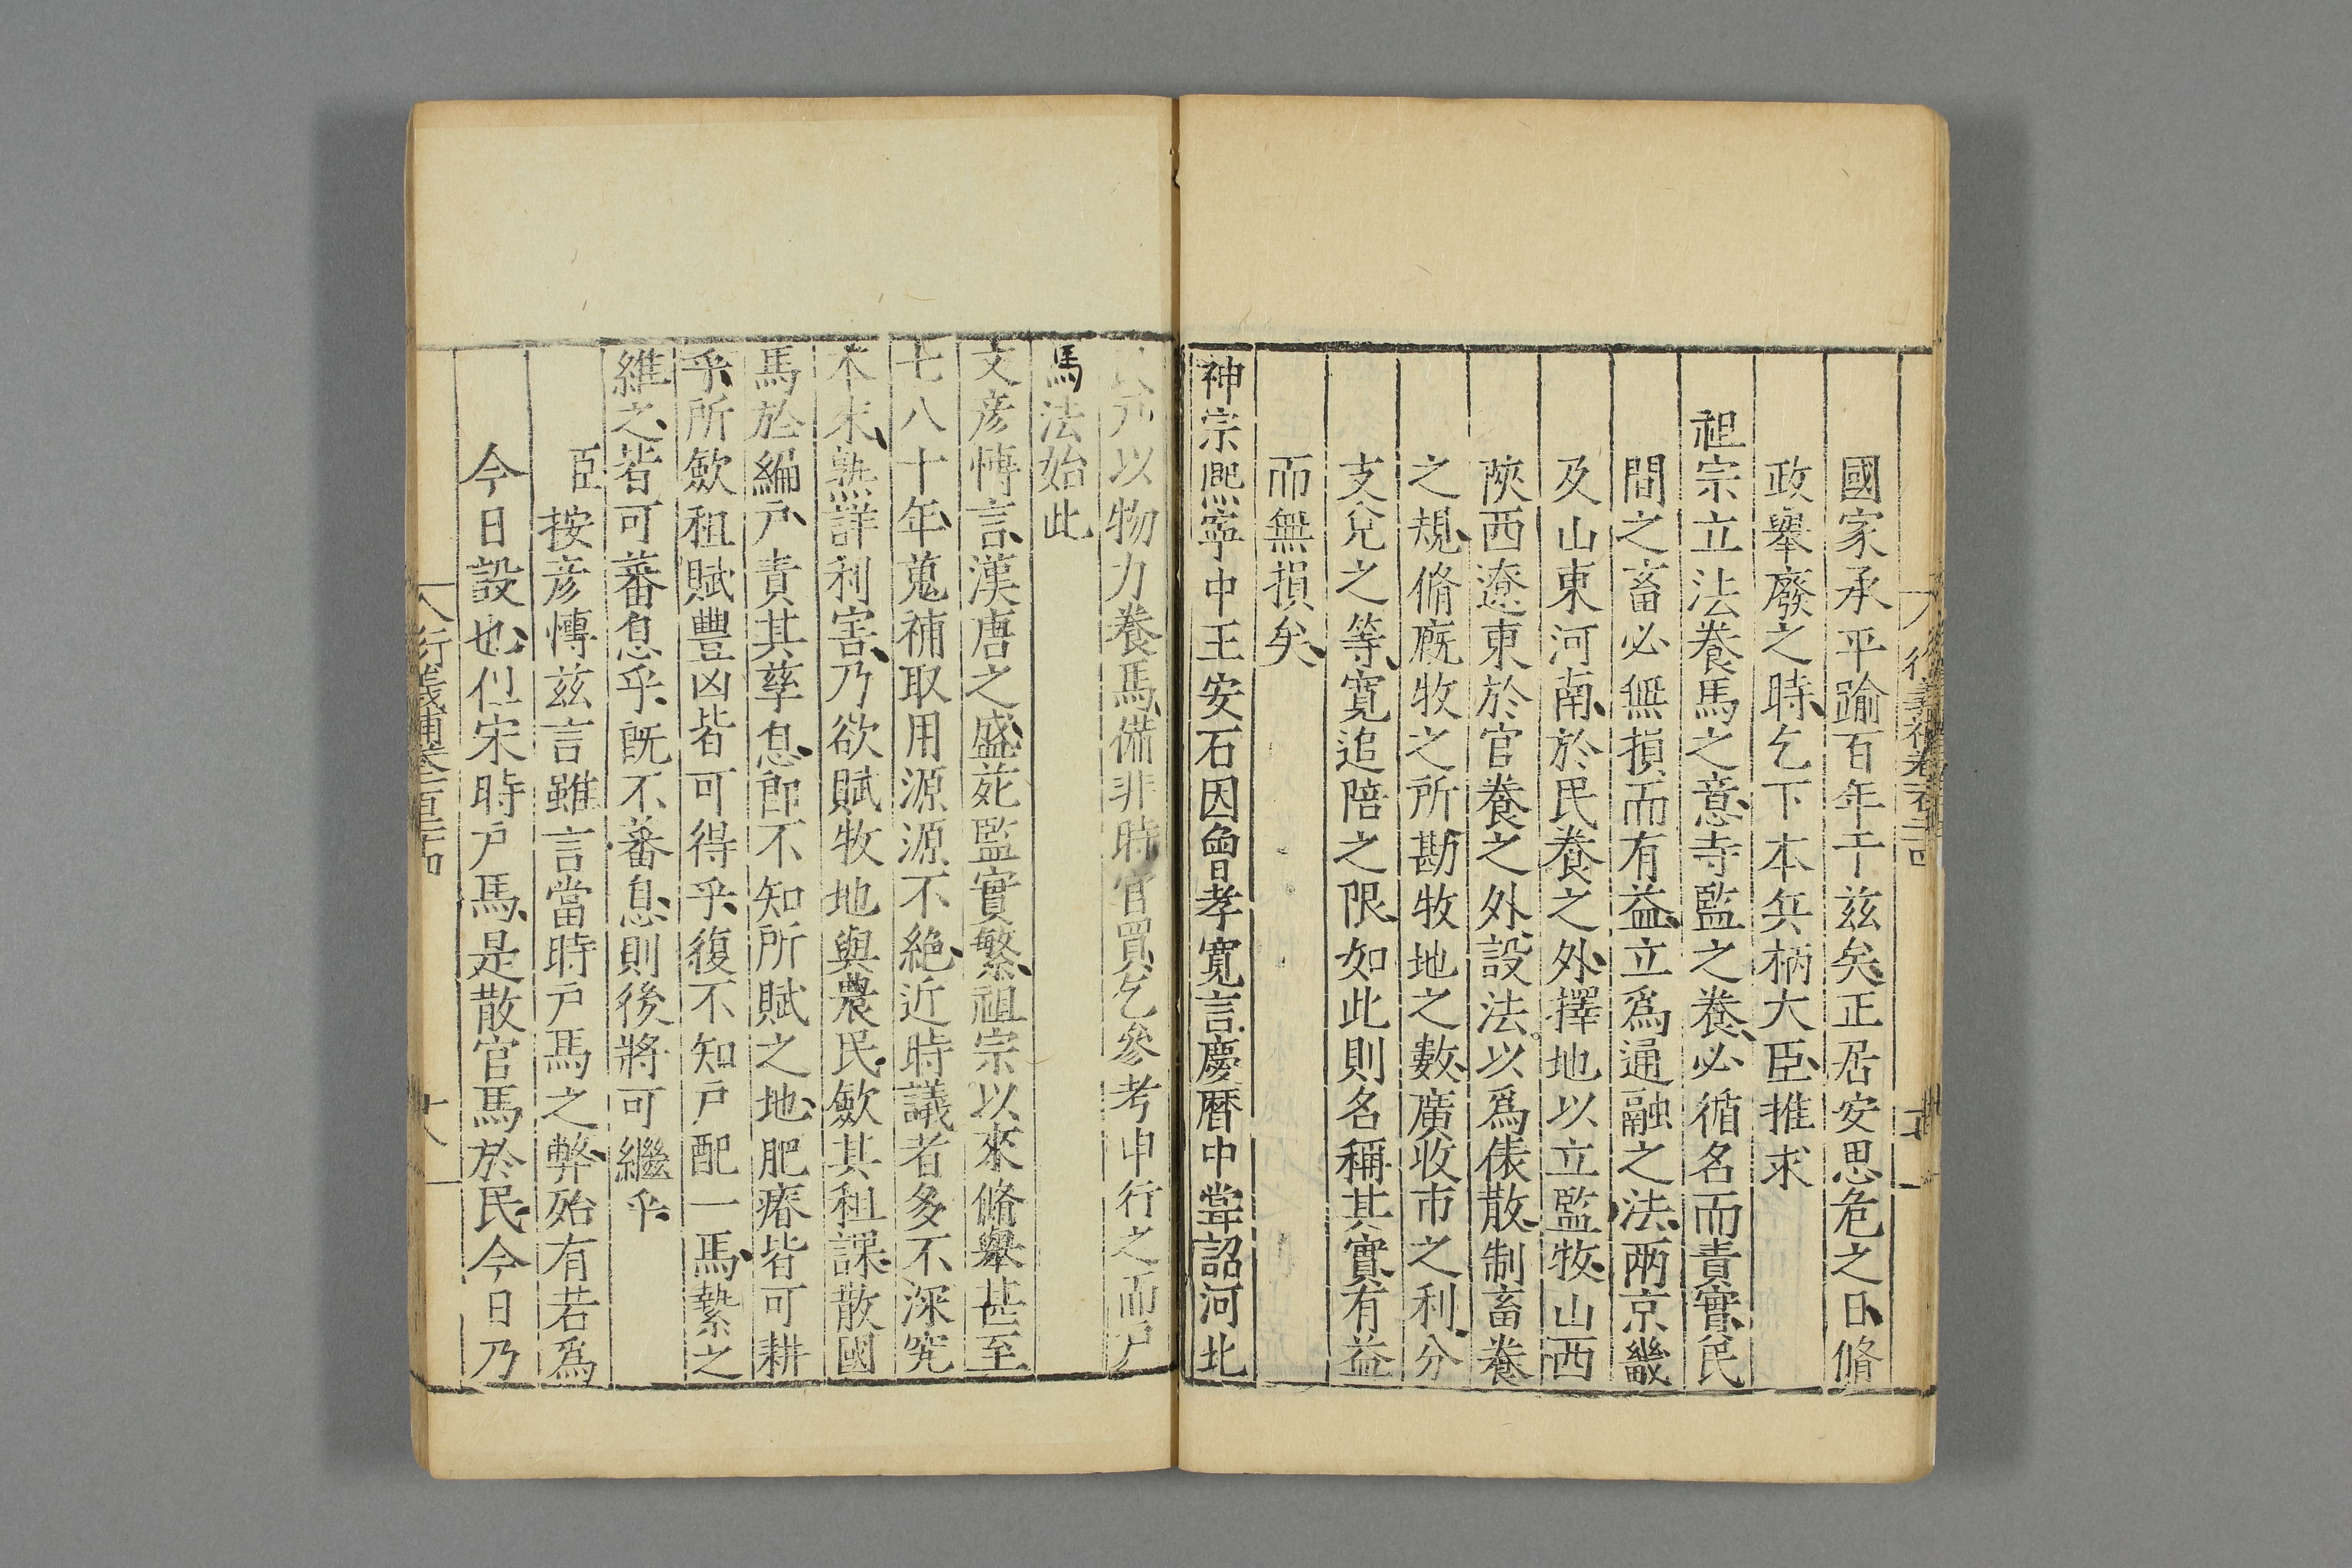 國家承平踰百年于兹矣正居安思危之日脩
政舉廢之時乞下本兵柄大臣推求
祖宗立法養馬之意寺監之養必循名而責實民
間之畜必無損而有益立爲通融之法两京畿
及山東河南於民養之外擇地以立監牧山西
陝西遼東於官養之外設法以爲俵散制畜養
之規脩廐牧之所勘牧地之數廣收市之利分
支兌之等寬追陪之限如此則名稱其實有益
而無損矣
神宗熈寧中王安石因曾孝寬言慶暦中嘗詔河北
以物力養馬備非時官買乞參考申行之而戸
馬法始此
文彦愽言漢唐之盛苑監實繁祖宗以來脩舉甚至
七八十年蒐補取用源源不絶近時議者多不深究
本末熟詳利害乃欲賦牧地與農民歛其租課散國
馬於編戸責其孳息即不知所賦之地肥瘠皆可耕
乎所歛租賦豐凶皆可得乎復不知戸配一馬縶之
維之皆可蕃息乎旣不蕃息則後將可繼乎
臣按彦愽兹言雖言當時戸馬之弊殆有若爲
今日設也但宋時戸馬是散官馬於民今日乃
衍義補卷一百二十四
十八